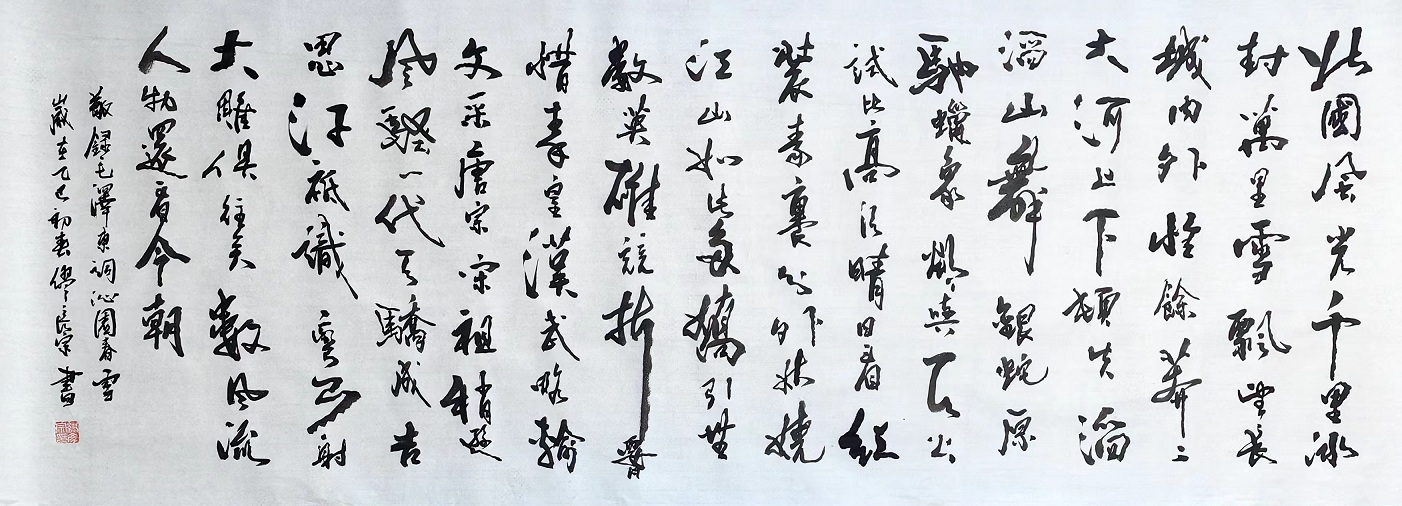 北國風光千里冰
封萬里雪飄望長
城內外惟餘莽〻
大河上下頓失滔
滔山舞銀蛇原
馳蠟象欲與天公
試比高須晴日看紅
裝素裹分外妖嬈
江山如此多嬌引無
數英雄競折腰
惜秦皇漢武略輸
文采唐宗宋祖稍遜
風騷一代天驕成吉
思汗祗識彎弓射
大雕俱往矣數風流
人物還看今朝
敬錄毛澤東詞沁園春雪
歲在乙巳初春宗書